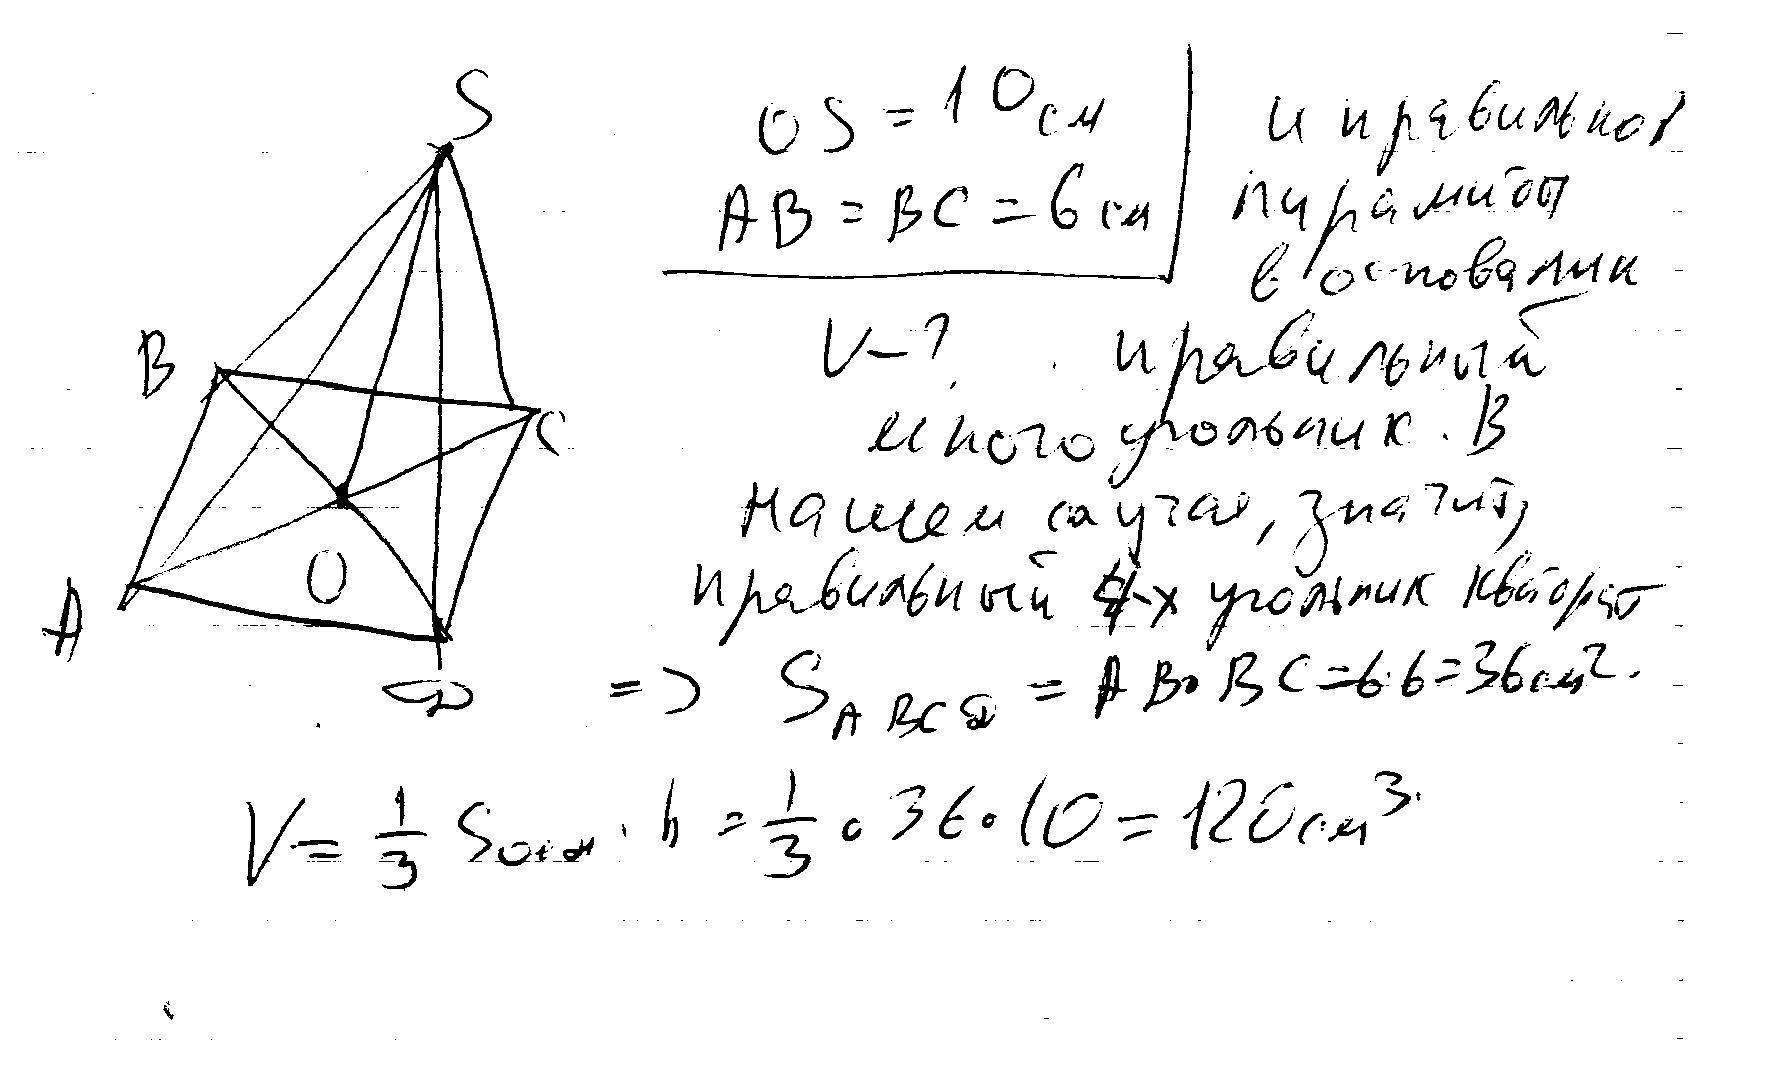 S
OS = 10 см
AB = BC = 6 см
V - ?
и правильной
пирамиды
в основании
правильный
многоугольник. В
нашем случае, значит,
правильный 4-х угольник квадрат
B
C
O
A
D
=> S ABCD = AB · BC = 6·6 = 36 см².
V = 1/3 Sосн · h = 1/3 · 36 · 10 = 120 см³.